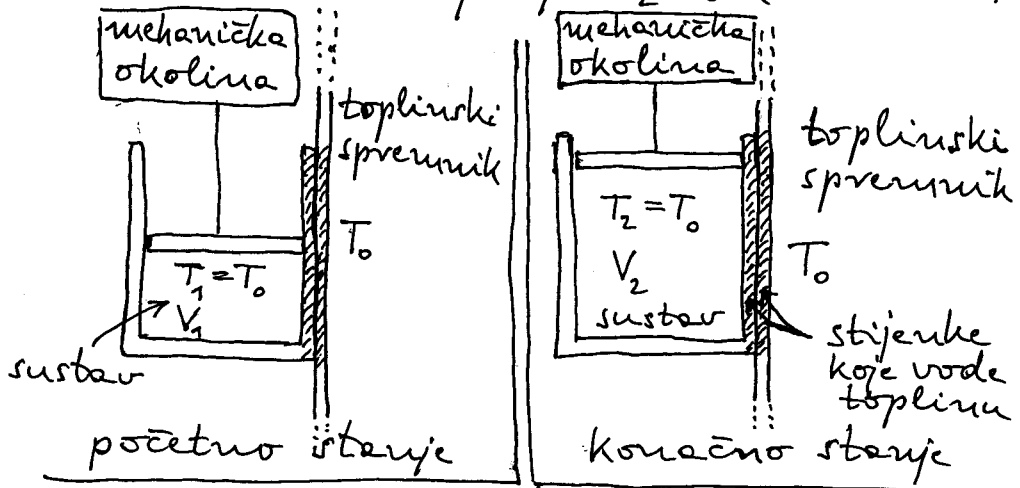 mehanička
okolina
toplinski
spremnik
T₀
T₁ = T₀
V₁
sustav
početno stanje
mehanička
okolina
toplinski
spremnik
T₂ = T₀
T₀
V₂
sustav
stijenke
koje vode
toplinu
konačno stanje